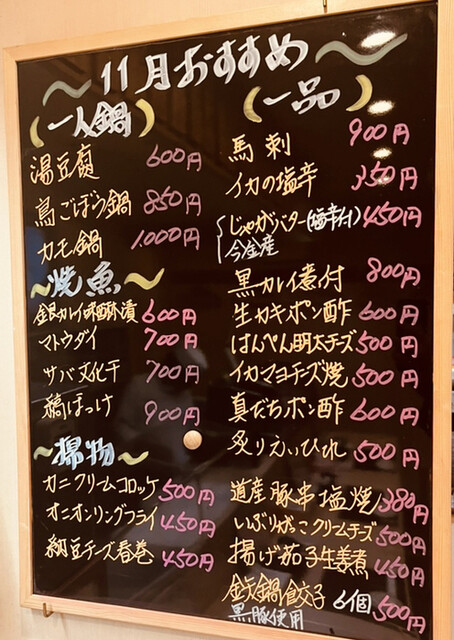 ～11月おすすめ～
(一人鍋)
湯豆腐 600円
鳥ごぼう鍋 850円
カモ鍋 1000円
～焼魚～
銀カレイ味醂漬 600円
マトウダイ 700円
サバ文化干 700円
縞ほっけ 900円
～揚物～
カニクリームコロッケ 500円
オニオンリングフライ 450円
納豆チーズ春巻 450円
(一品)
馬刺 900円
イカの塩辛 350円
じゃがバター(塩辛付) 450円
今金産
黒カレイ煮付 800円
生カキポン酢 600円
はんぺん明太チーズ 500円
イカマヨチーズ焼 500円
真だちポン酢 600円
炙りえいひれ 500円
道産豚串塩焼 380円
いぶりがっこクリームチーズ 500円
揚げ茄子生姜煮 450円
鉄鍋餃子 6個 500円
黒豚使用